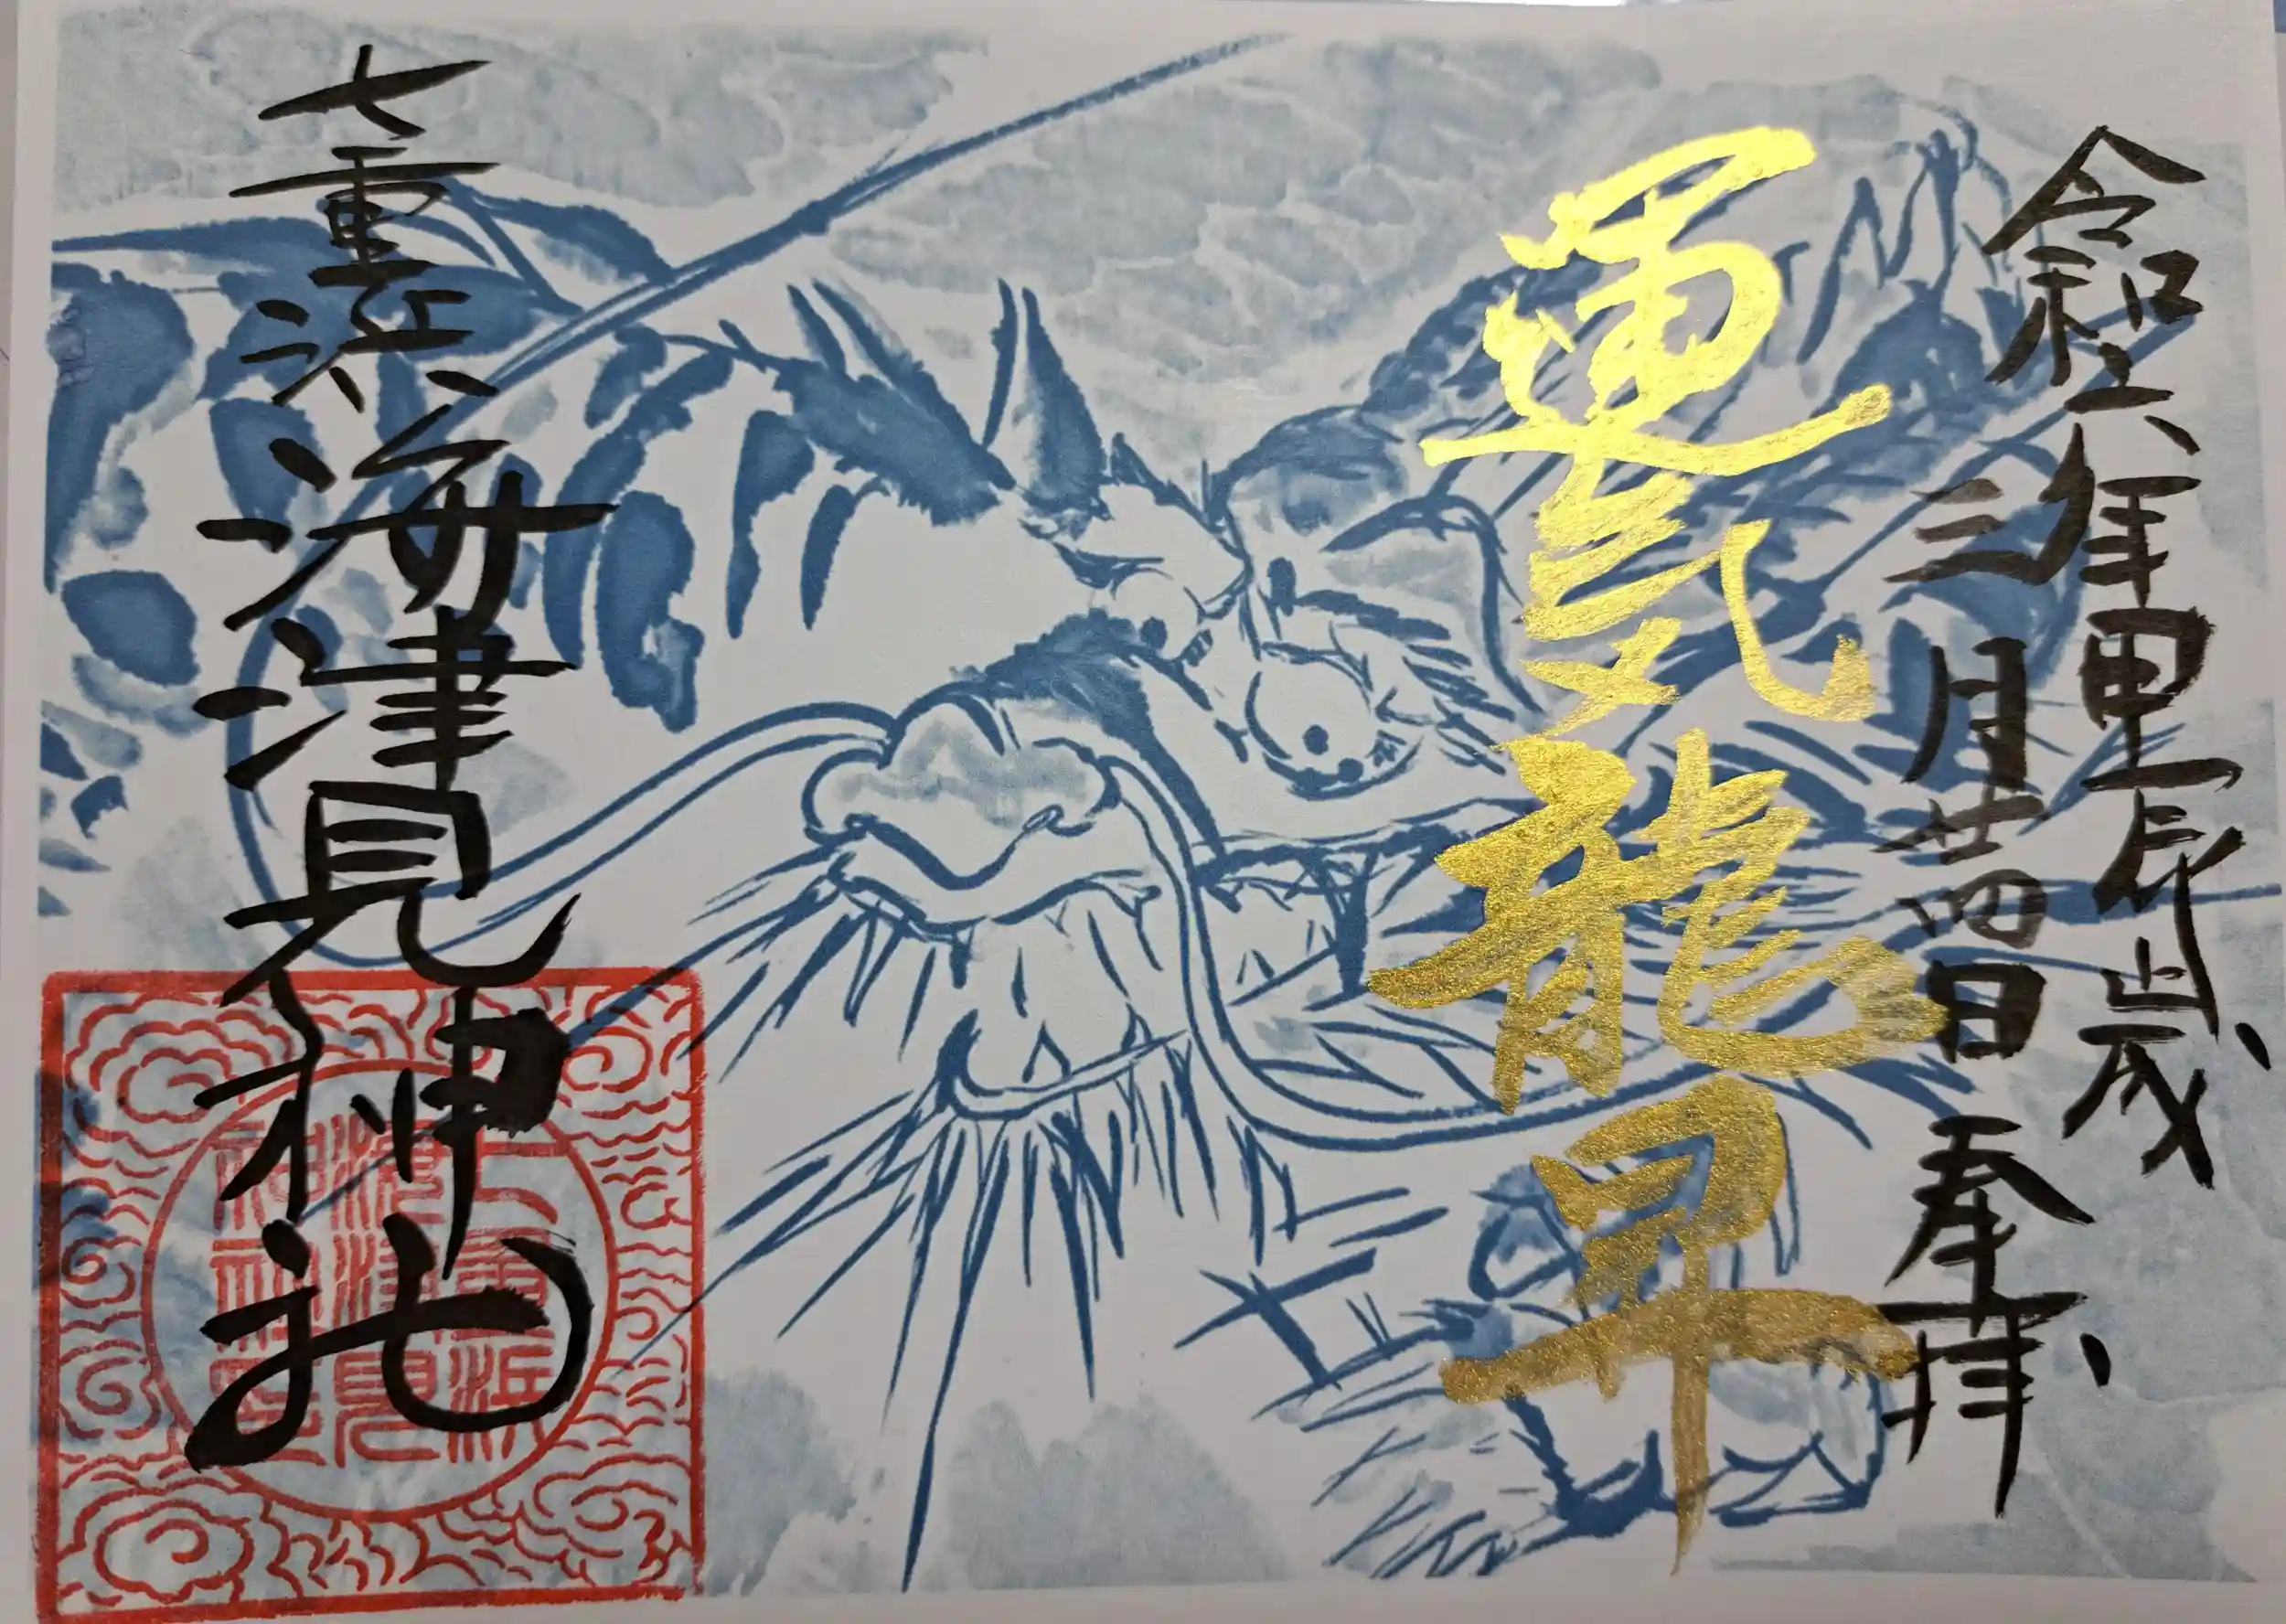 令和六年甲辰歳
三月廿四日 奉拝
運気龍昇
七重浜海津見神社
七重浜
海津見
神社之印